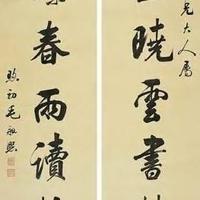 兄大人屬
曉雲書
春雨讀
煦初毛昶熙